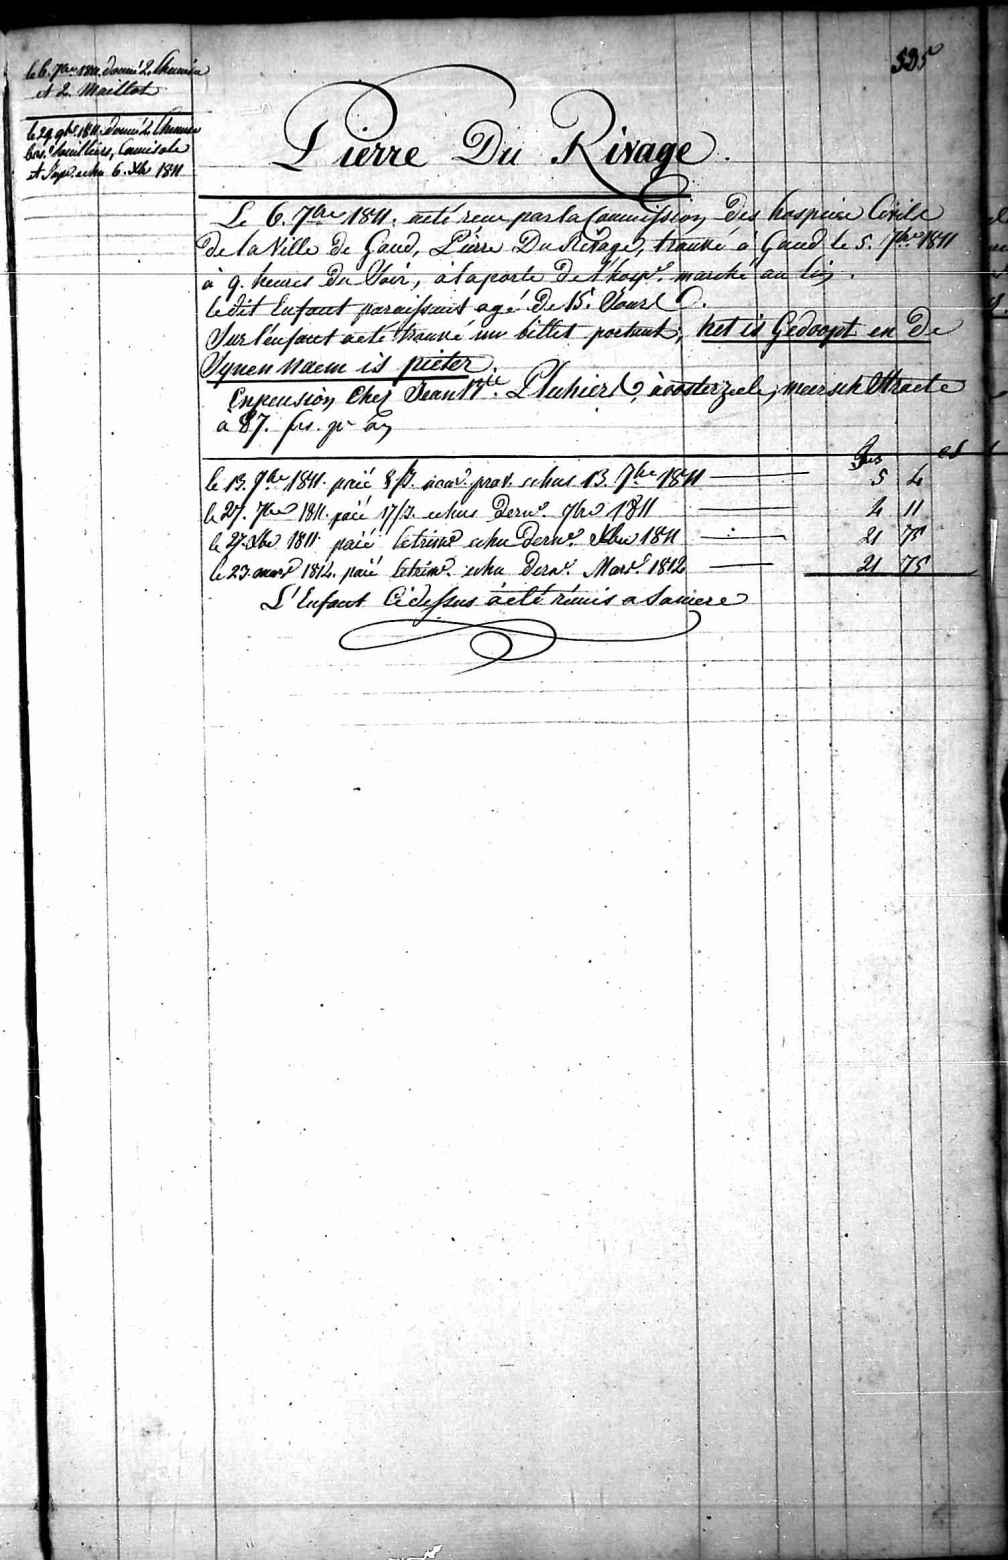 535
le 6. 7bre 1811. donné 2. Chemises
et 2. Maillot
le 29. 9bre 1811. donné 2. Chemises
bas, Souilliers, Camisole
et Jupe echu 6. Xbr 1811
Pierre Du Rivage.
Le 6. 7bre 1811. a eté recu par la Commission des hospices Civils
de la Ville de Gand, Pierre Du Rivage, trouvé à Gand le 5. 7bre 1811
à 9. heures du Soir, à la porte de l'hosp.e marché au lin.
le dit Enfant paraissant agé de 15. Jours.
Sur l'enfant a eté trouvé un billet portant; het is Gedoopt en De
Synen naem is pieter.
En pension Chez Jean Bte. , à oosterzeele, meersch Straete
à 87. frs. pr an
frs cs
le 13. 7bre 1811. paié prov. echus 13. 7bre 1811 5 4
le 27. 7bre 1811. paié 17/J. echus dern.r 7bre 1811 4 11
le 27. Xbre 1811. paié le trim.e echu dern.r Xbre 1811 21 75
le 23. mars 1812. paié le trim.e echu dern.r Mars 1812 21 75
L'Enfant Cidessus a eté rémis a Sa mere